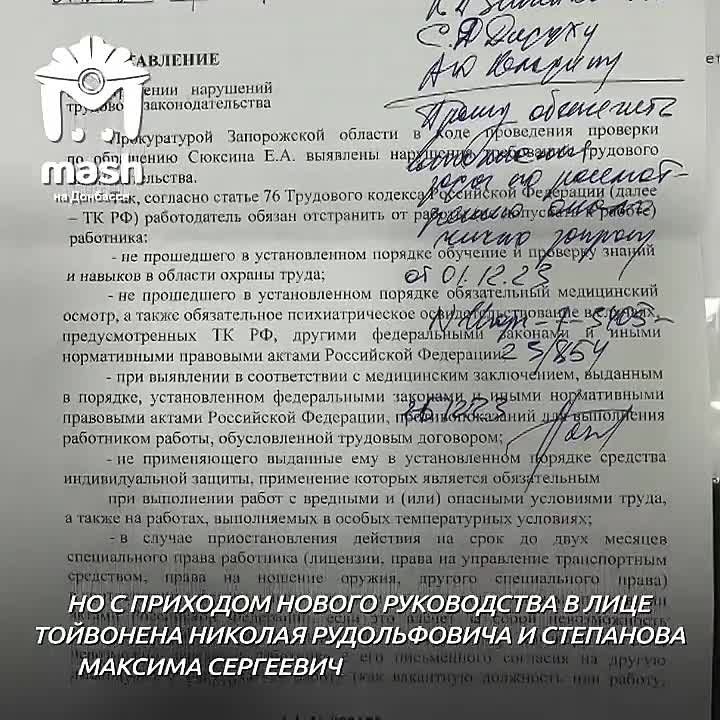 С.А Дидуху
АВЛЕНИЕ
ении нарушений
трудово законодательства
Прокуратурой Запорожской области в ходе проведения проверки
по обращению Сюксина Е.А. выявлены нарушения требований трудового
mash
на Донбассе
ак, согласно статье 76 Трудового кодекса Российской Федерации (далее
– ТК РФ) работодатель обязан отстранить от работы допускать к работе)
работника:
- не прошедшего в установленном порядке обучение и проверку знаний
и навыков в области охраны труда;
от 01.12.23
- не прошедшего в установленном порядке обязательный медицинский
осмотр, а также обязательное психиатрическое освидетельствование в случаях,
предусмотренных ТК РФ, другими федеральными законами и иными
нормативными правовыми актами Российской Федерации
23/854
- при выявлении в соответствии с медицинским заключением, выданным
в порядке, установленном федеральными законами и иными нормативными
правовыми актами Российской Федерации, противопоказаний для выполнения
работником работы, обусловленной трудовым договором;
- не применяющего выданные ему в установленном порядке средства
индивидуальной защиты, применение которых является обязательным
при выполнении работ с вредными и (или) опасными условиями труда,
а также на работах, выполняемых в особых температурных условиях;
- в случае приостановления действия на срок до двух месяцев
специального права работника (лицензии, права на управление транспортным
средством, права на ношение оружия, другого специального права)
НО С ПРИХОДОМ НОВОГО РУКОВОДСТВА В ЛИЦЕ
ТОЙВОНЕНА НИКОЛАЯ РУДОЛЬФОВИЧА И СТЕПАНОВА
МАКСИМА СЕРГЕЕВИЧ
его письменного согласия на другую
как вакантную должность или работу,